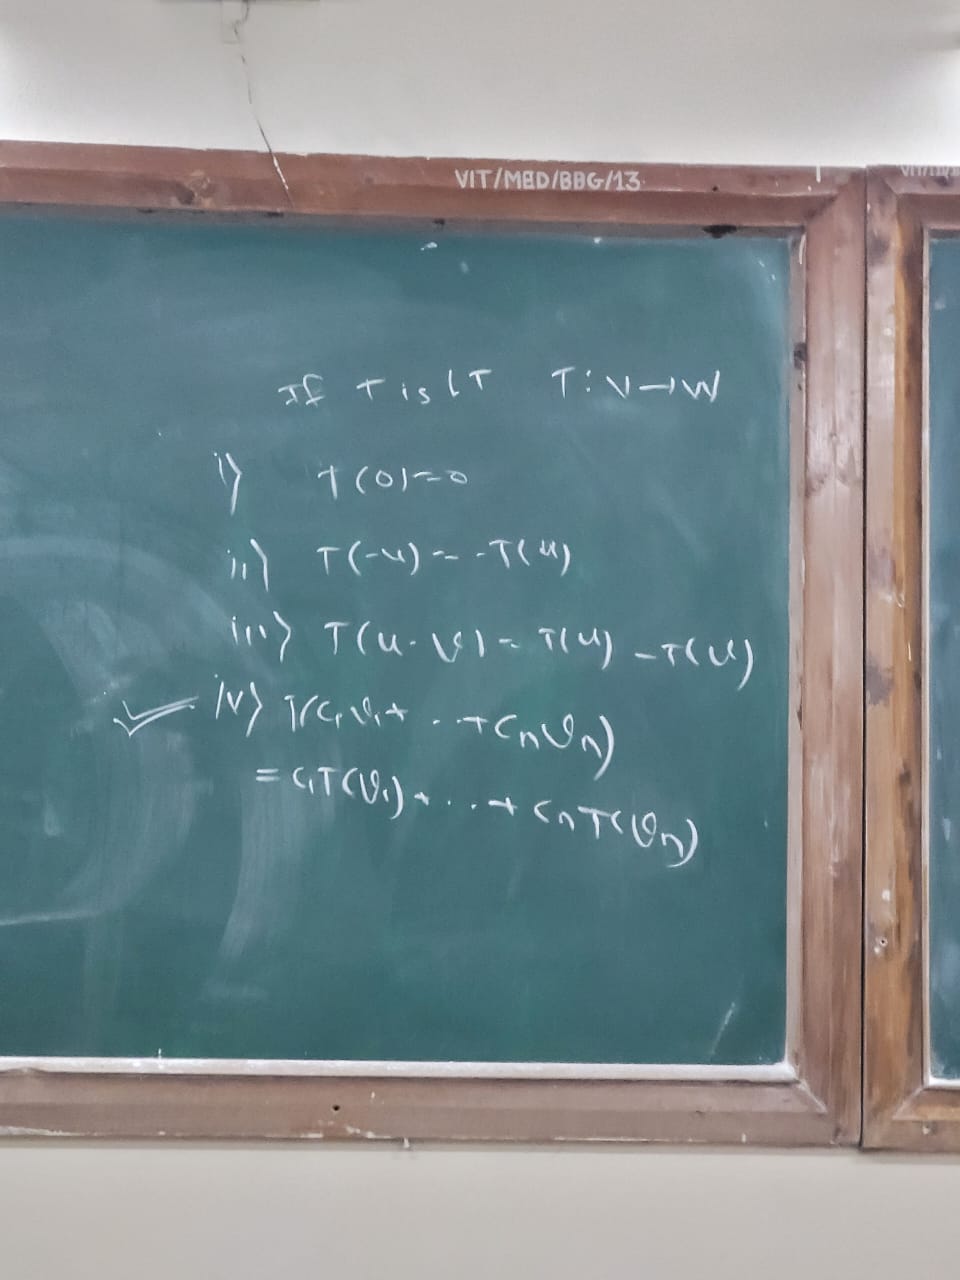 VIT/MED/BBG/13
If T is LT T: V→W
i) T(0)=0
ii) T(-u) = -T(u)
iii) T(u-v) = T(u) - T(v)
iv) T(c₁v₁+ ..+cₙvₙ)
= c₁T(v₁)+...+cₙT(vₙ)